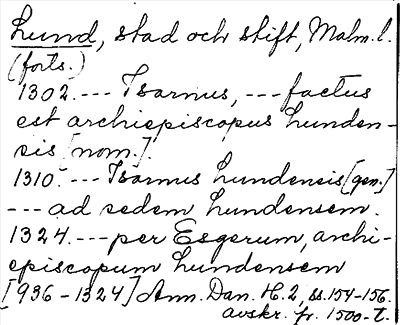 Lund, stad och stift, Malm. l.
(forts.)
1302. --- Isarnus, --- factus
est archiepiscopus Lunden-
sis [nom.].
1310. --- Isarnus Lundensis [gen.]
--- ad sedem Lundensem.
1324. --- per Esgerum, archi-
episcopum Lundensem
[936-1324] Ann. Dan. H. 2, ss. 154-156.
avskr. fr. 1500-t.